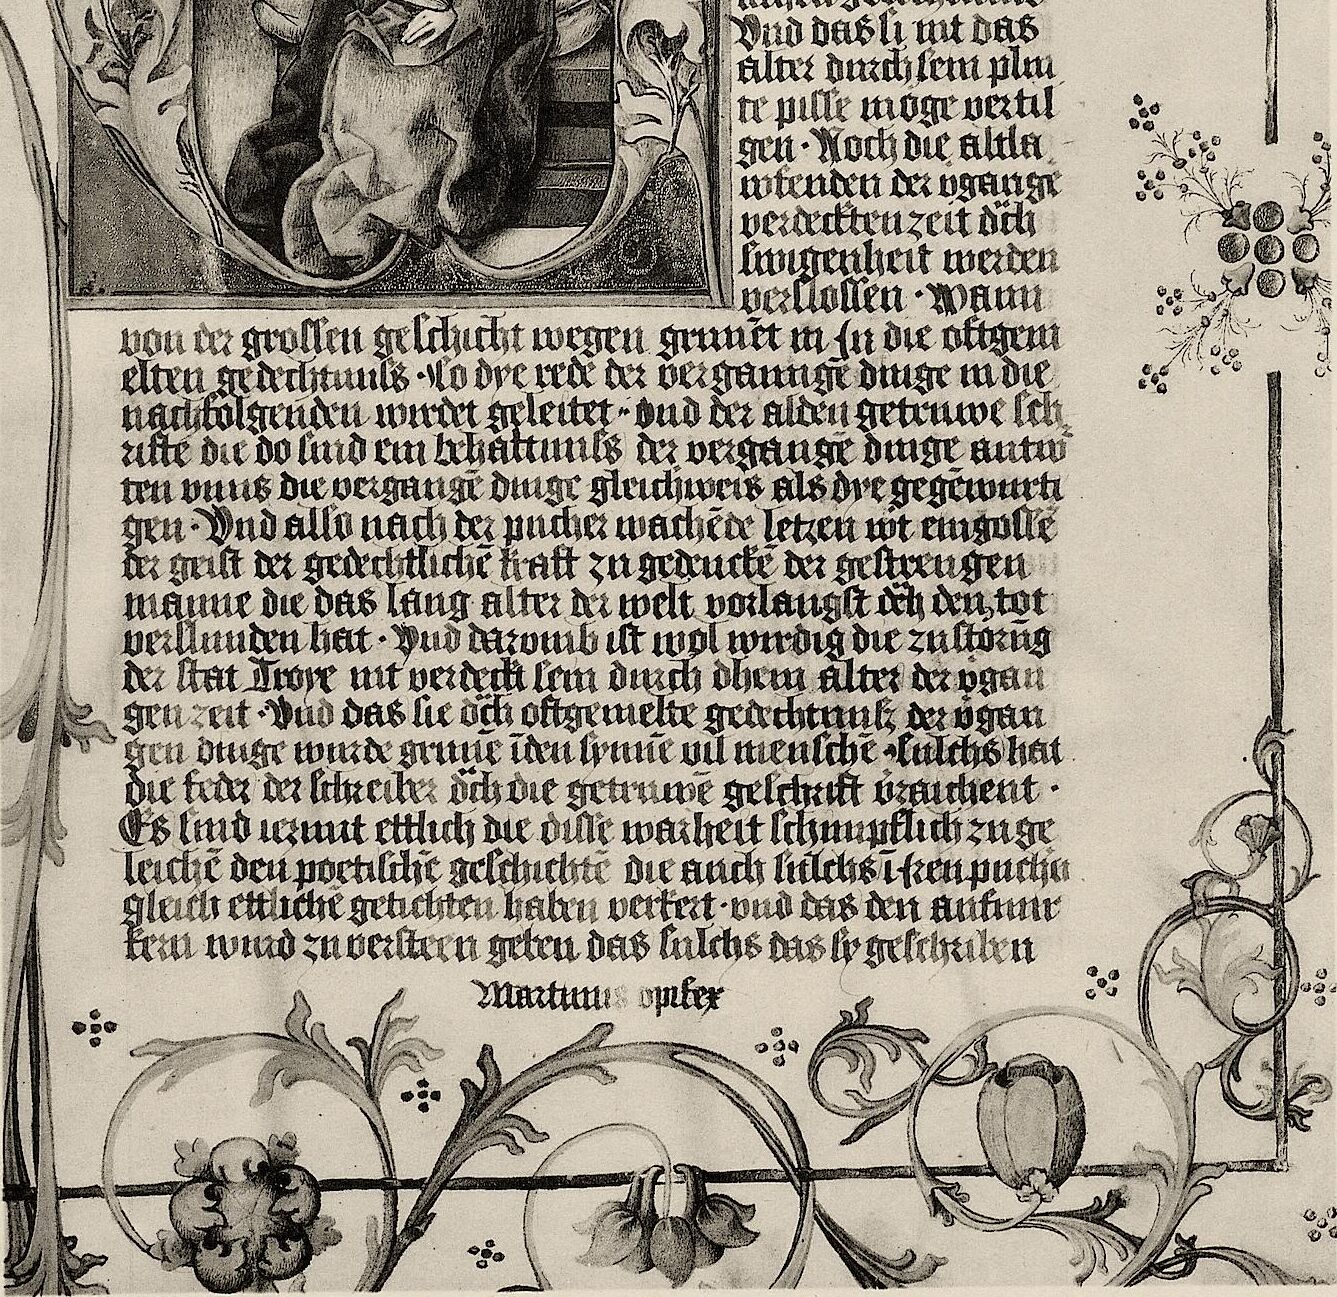 Vnd das si mt das
alter durch sein plm
te pisse moge vertil
gen · Noch die altla
wfenden der vgange
verdeckten zeit dh̄
swigenheit werden
verslossen · Wann
von der grossen geschicht wegen grunēt in In die oftgem
elten gedechtnuss · So dye rede der vergannge dinge in die
nachfolgenden wirdet geleitet · vnd der alden getruwe sch
rifte die do sind ein behaltnuss der vergangē dinge antw
ten vnns die vergangē dinge gleichweis als dye gegēwurti
gen · Vnd also nach der pucher wachēde letzen wt eingossē
der geist der gedechtlichē kraft zu gedenckē der gestrengen
manne die das lang alter der welt vorlangst dch den tot
verslunden hat · Vnd darvmb ist wol wirdig die zustorūg
der stat Troye nit verdeckt sein durch dhein alter der vgan
gen zeit · Vnd das sie dch oftgemelte gedechtnuss der vgan
gen dinge wurde grunē īden synnē vil menschē · sulchs hat
die feder der schreiber dch die getruwē geschrift vrzaichent ·
Es sind iezunt ettlich die disse warheit schimpflich zu ge
leichē den poetischē geschichtē die auch sulchs ī Iren puchn
gleich ettlichē getichten haben verkert · vnd das den aufmir
kern wurd zu versteen geben das sulchs das sy geschriben
Martinus opifex